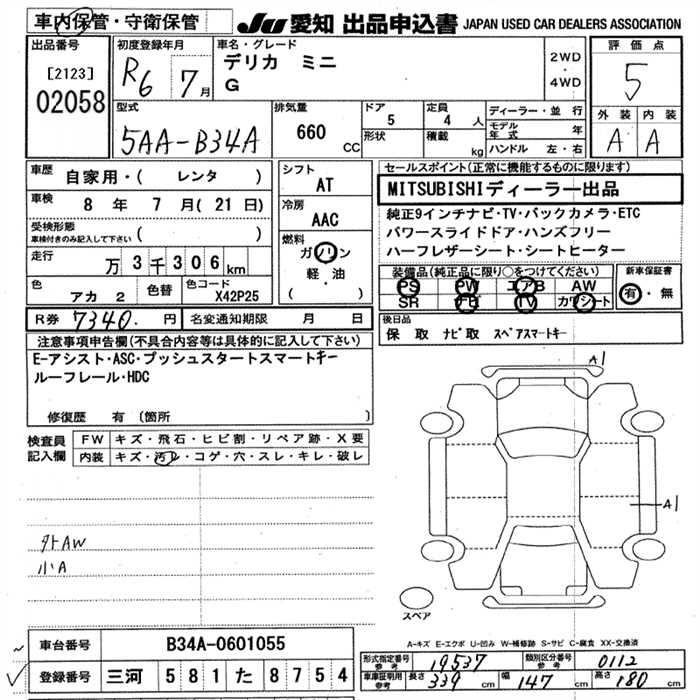 車内保管・守衛保管 JU 愛知 出品申込書 JAPAN USED CAR DEALERS ASSOCIATION
出品番号 初度登録年月 車名・グレード 評価点
[2123] R6 7月 デリカ ミニ 2WD・4WD 5
02058 G 外装 内装
型式 排気量 ドア 定員 ディーラー・並行 A A
5AA-B34A 660 CC 5 4人 モデル年式 年
形状 積載 kg ハンドル 左・右
車歴 自家用・( レンタ ) シフト セールスポイント(正常に機能するものに限ります)
車検 8年 7月(21日) AT MITSUBISHIディーラー出品
受検形態 車検付きのみ記入して下さい ( ) 冷房 純正9インチナビ・TV・バックカメラ・ETC
AAC パワースライドドア・ハンズフリー
走行 万3千306km 燃料 ガソリン ハーフレザーシート・シートヒーター
色 色替 色コード 軽・油 装備品(純正品に限り○をつけてください) 新車保証書
アカ 2 X42P25 ( ) PS PW エアB AW 有・無
SR TV カワシート
R券 7340.円 名変通知期限 月 日 後日品
注意事項申告欄(不具合内容等は具体的に記入して下さい) 保 取 ナビ取 スペアスマートキー
E-アシスト・ASC・プッシュスタートスマートキー
ルーフレール・HDC
修復歴 有(箇所 )
A1
検査員記入欄 FW キズ・飛石・ヒビ割・リペア跡・X要
内装 キズ・汚レ・コゲ・穴・スレ・キレ・破レ
A1
外AW
小A
スペア
A-キズ E-エクボ U-凹み W-補修跡 S-サビ C-腐食 XX-交換済
車台番号 B34A-0601055
登録番号 三河 581 た 8754
形式指定番号 参考 19537 類別区分番号 参考 0112
車庫証明用 参考 長さ 339cm 幅 147cm 高さ 180cm